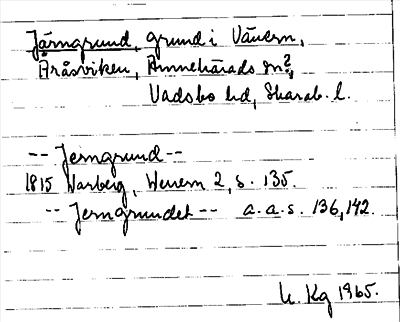 Järngrund, grund i Vänern,
Åråsviken, Amnehärads sn,
Vadsbo hd, Skarab. l.
-- Jerngrund --
1815 Warberg, Wenern 2, s. 135.
-- Jerngrundet -- a.a.s. 136, 142.
Kg 1965.